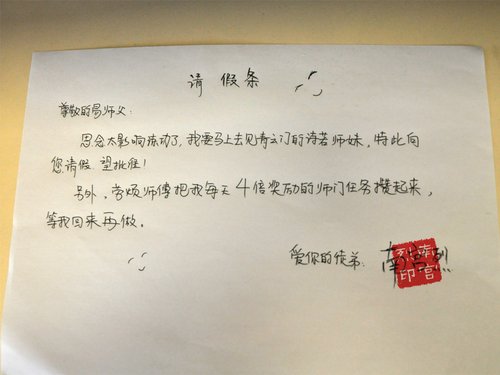 请假条
尊敬的易师父：
思念太影响练功了，我要马上去见青云门的诗若师妹，特此向
您请假，望批准！
另外，劳烦师傅把我每天4倍奖励的师门任务攒起来，
等我回来再做。
爱你的徒弟：南宫烈
南宫烈印